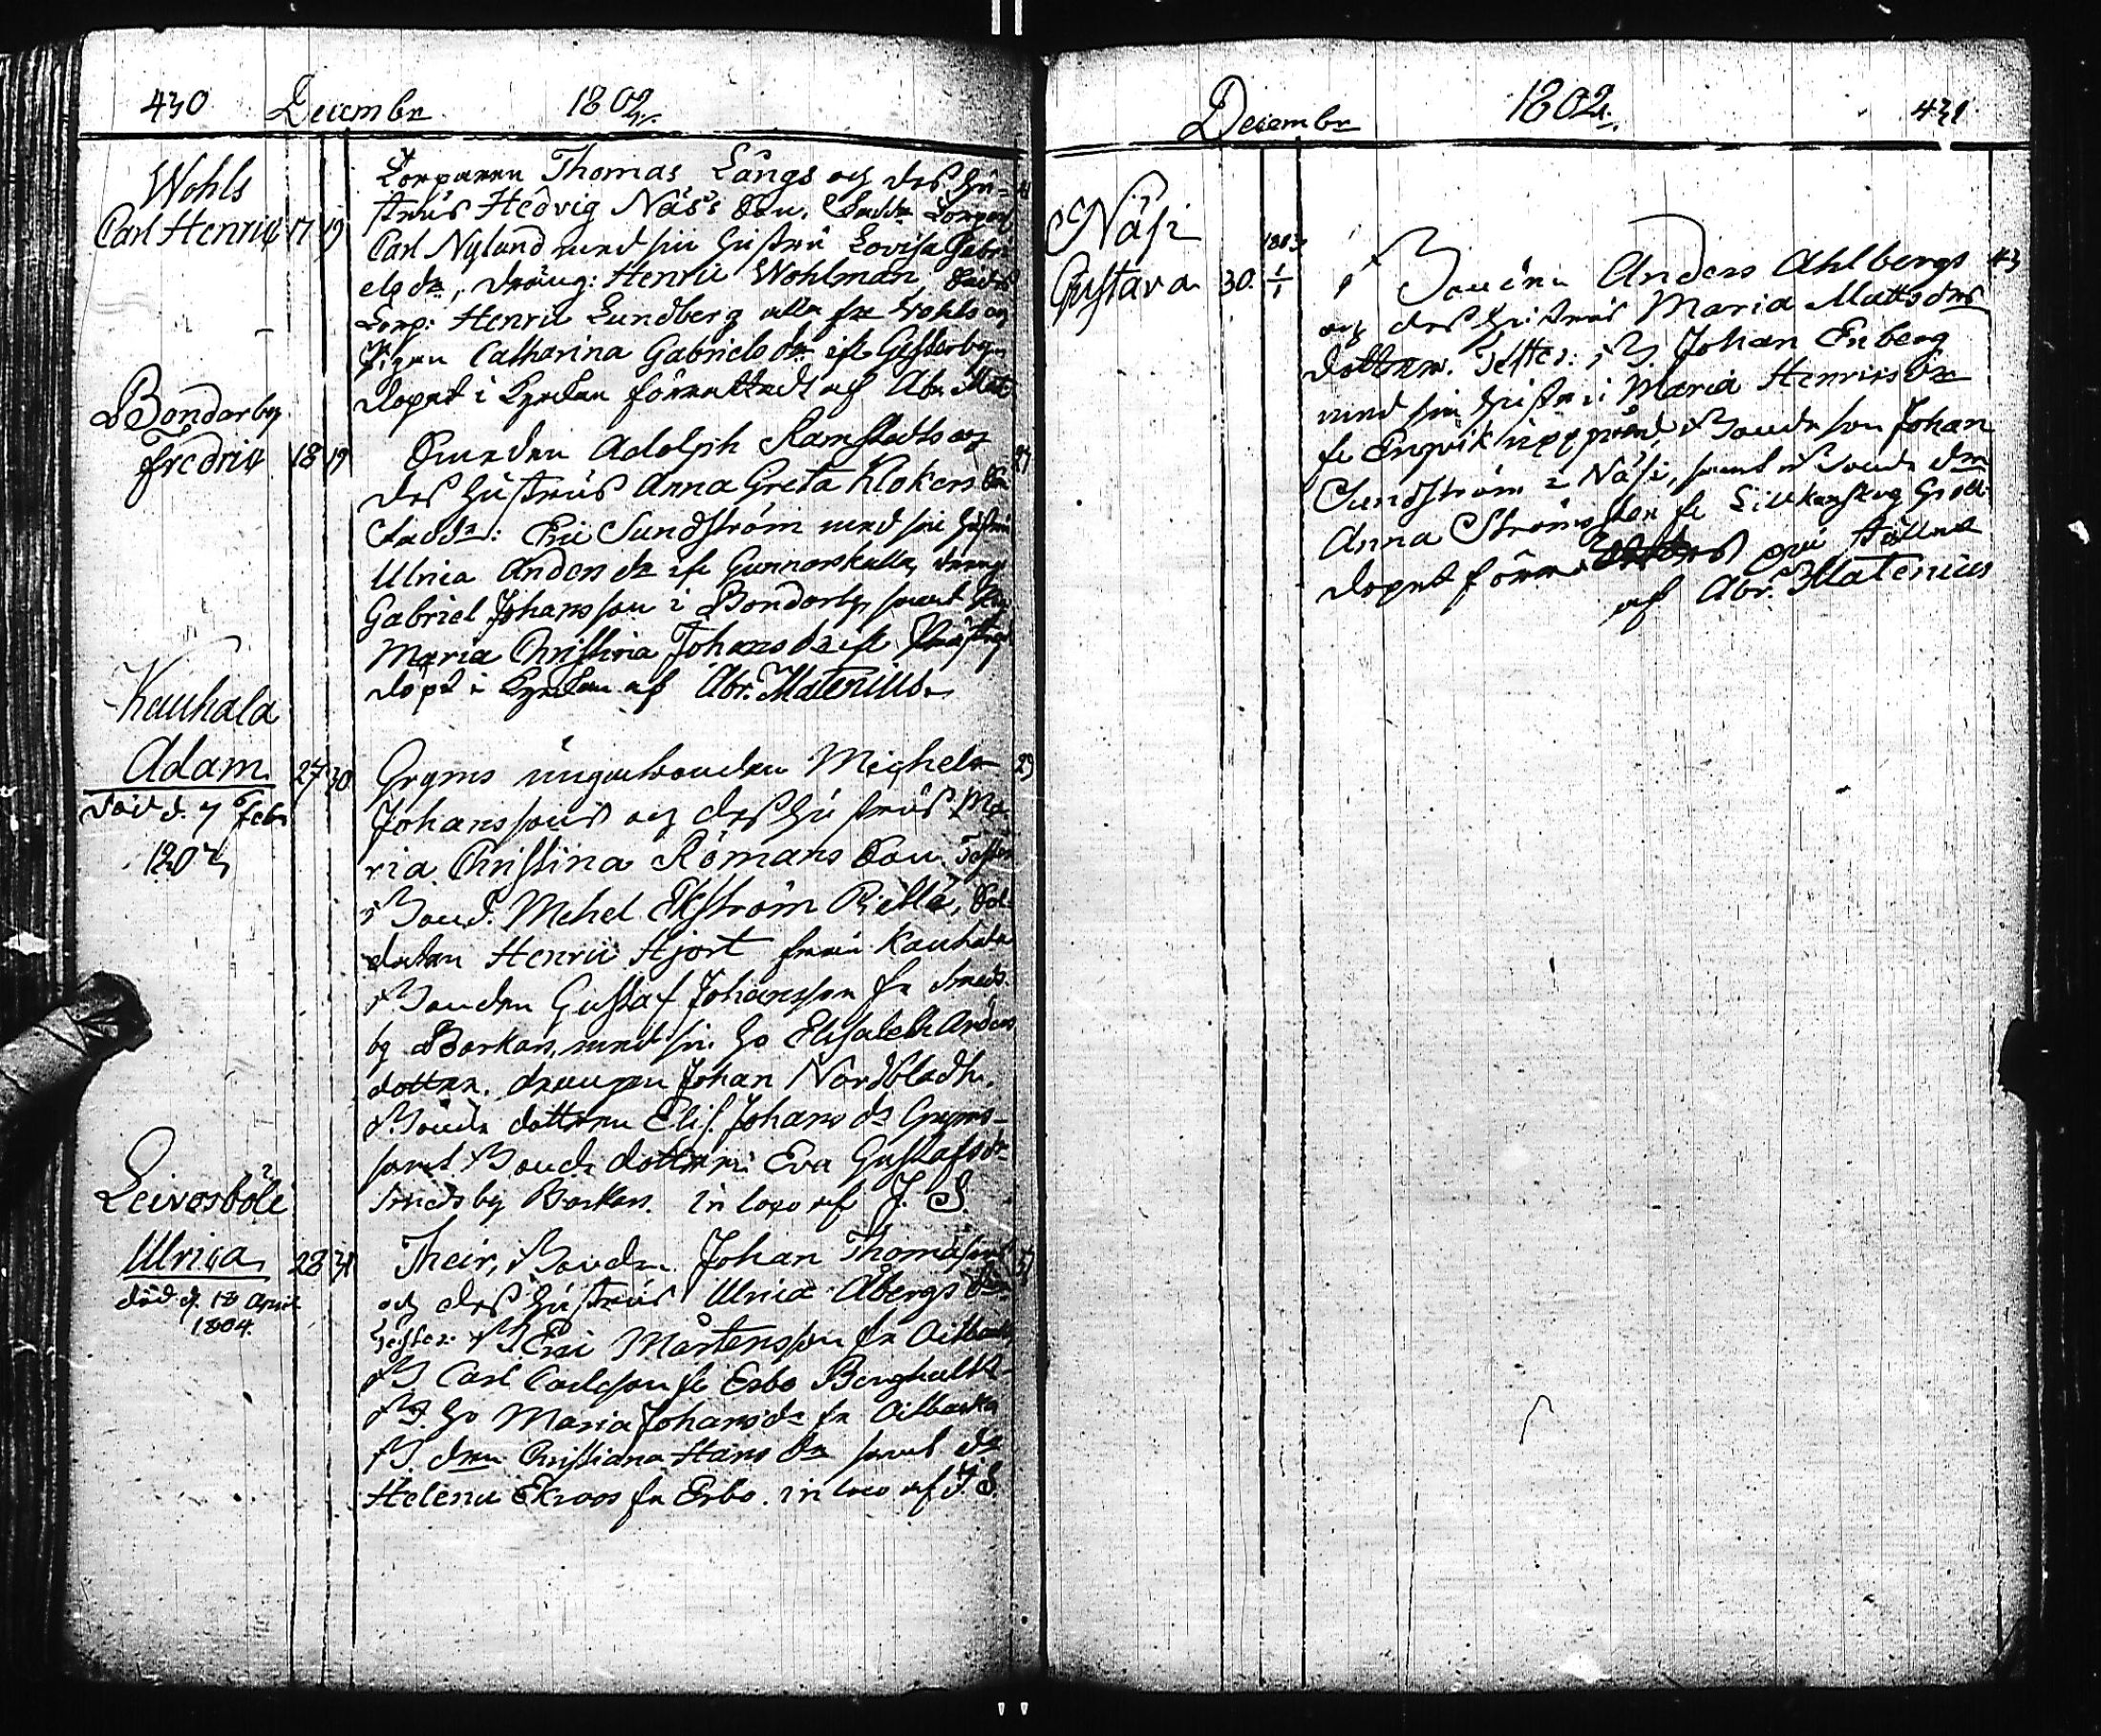 430 Decembr 1802.
Wohls
Carl Henric 17 19
Torparen Thomas Långs och des hu-
strus Hedvig Näs's Son. Fadd: Torpar
Carl Nylund med sin hustru Lovisa Gabri
els dr, dräng: Henric Wohlman,
Torp: Henric Lundberg alla fr Wohls och
Pigan Catharina Gabriels dr ifr Gesterby
döpet i Kyrkan förrättadt af Abr. Mate
Bondarby
Fredric 18 19
Smeden Adolph Ramstedts och 27
des hustrus Anna Greta Klokers Son
Faddr: Eric Sundström med sin hustru
Ulrica Anders dr ifr Gunnarskulla, dräng
Gabriel Johansson i Bondarby, samt Pig
Maria Christina Johans dr ifr
döpt i Kyrkan af Abr. Matenius.
Kauhala
Adam 27 30
död d. 7 Febr
1803
Gryms ungebonden Michels 29
Johanssons och des hustrus Ma
ria Christina Römans Son. Testes
Bond. Mehel Ekström Pietlä, Sol-
daten Henric Hjort från Kauhala
Bonden Gustaf Johansson fr Smeds
by Barkars, med sin ho Elisabeth Anders
dotter. drengen Johan Nordbladh.
Bonde dottern Elis. Johans dr Gryms
samt Bonde dottern Eva Gustafs dr
Smedsby Barkars. in loco af J. S.
Leivosböle
Ulrica 28 31
död d. 18 April
1804.
Their, Bonden Johan Thomassons 31
och des hustrus Ulrica Åbergs
Testes. B Eric Mårtensson fr Oitbacka
B Carl Carlsson fr Esbo Benghalt
B. ho Maria Johans dr fr Oitbacka
B. dren Christiana Hans dr samt dr
Helena Ekroos fr Esbo. in loco af J. S.
Decembr 1802. 431
Näsi 1803
Gustava 30. 1/1
Bonden Anders Ahlbergs 43
och des hustrus Maria Mattsdrs
dotter. Testes: B. Johan Enberg
med sin hustru Maria Henriks dr
fr Engvik uppgård, Bonde son Johan
Sundström i Näsi, samt Bonde drn
Anna Ströms fr
döpet förrättades på stället
af Abr. Matenius